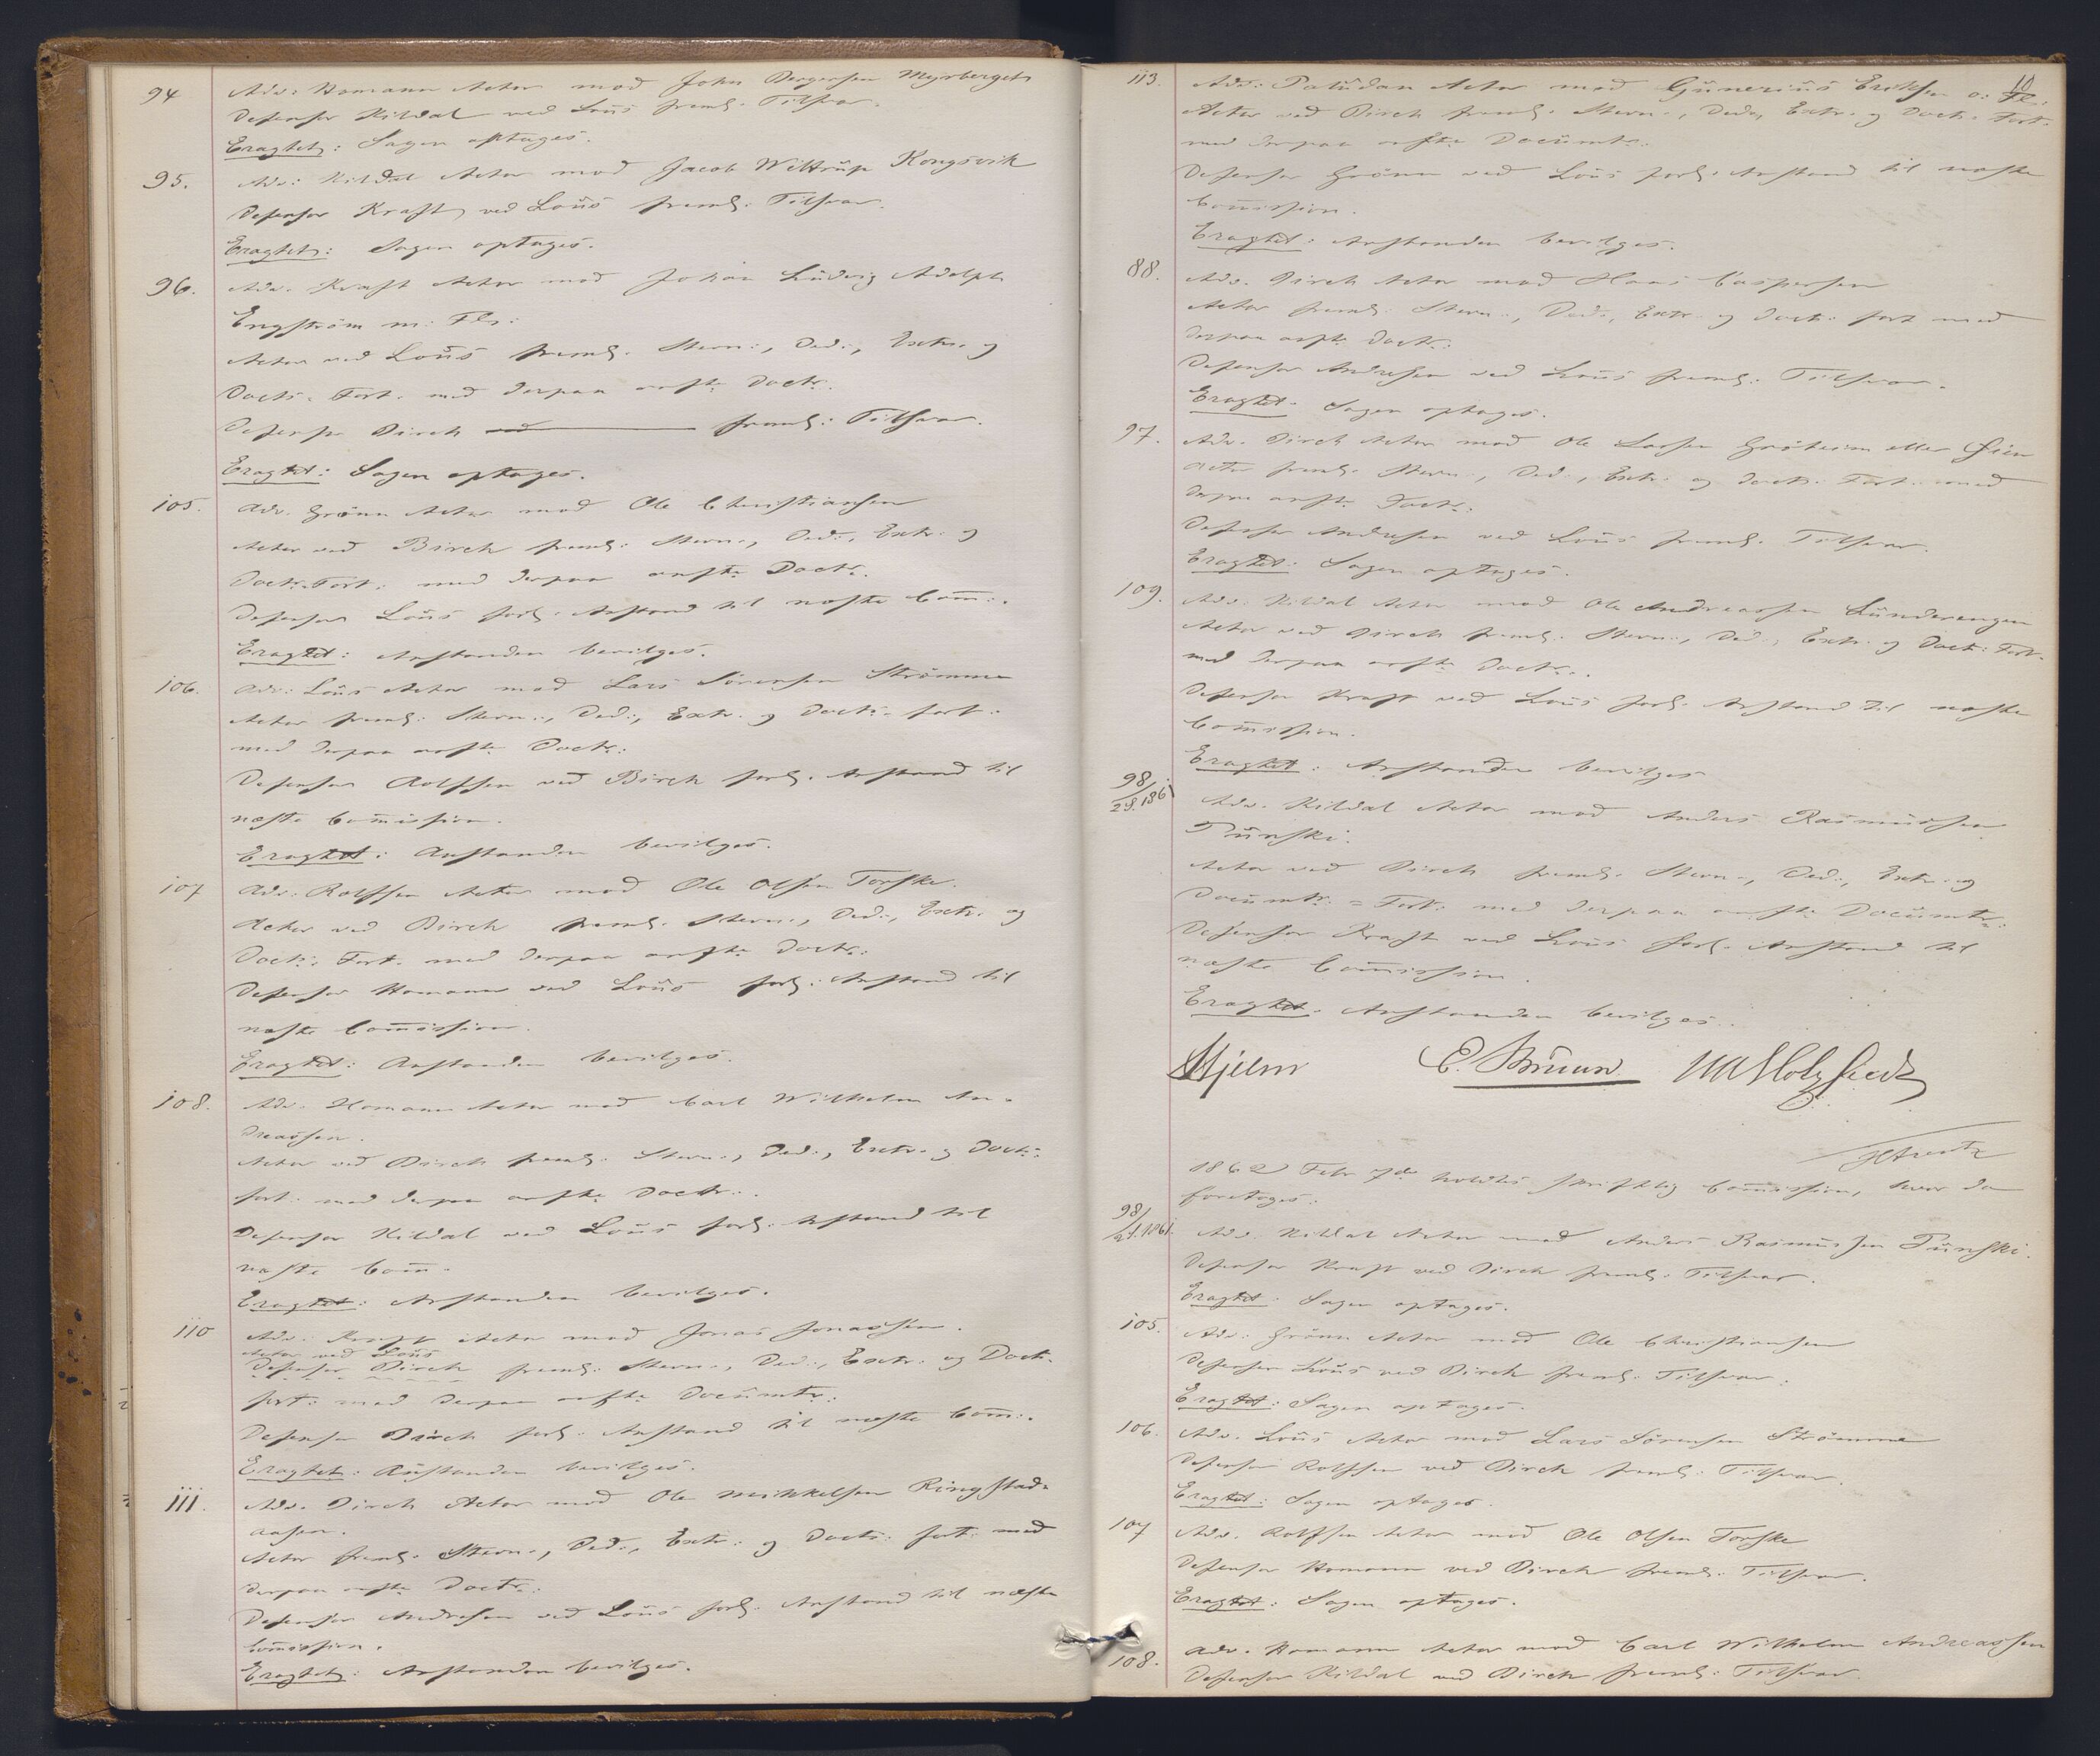 94 Adv: Homann Actor mod John Børgersen Myrberget
Defensor Kildal ved Loüs freml: Tilsvar.
Eragtet: Sagen optages.
95. Adv: Kildal Actor mod Jacob Wittrüp Kongsvik
Defensor Kraft ved Loüs freml: Tilsvar.
Eragtet: Sagen optages.
96. Adv. Kraft Actor mod Johan Lüdvig Adolph
Engström m: Fl:
Actor ved Loüs freml: Stevn:, Ded:, Extr. og
Doct: Fort. med derpaa anfte Doctr.
Defensor Birch freml: Tilsvar.
Eragtet: Sagen optages.
105. Adv. Grönn Actor mod Ole Christiansen
Actor ved Birch freml: Stevn:, Ded:, Extr. og
Doctr. Fort: med derpaa anfte Doctr.
Defensor Loüs forl. Anstand til næste Com̄:.
Eragtet: Anstanden bevilges.
106. Adv: Loüs Actor mod Lars Sörensen Strömme
Actor freml: Stevn:, Ded:, Extr. og Doct: fort:
med derpaa anfte Doctr:
Defensor Rolfsen ved Birch forl. Anstand til
næste Com̄ission.
Eragtet: Anstanden bevilges.
107 Adv: Rolfsen Actor mod Ole Olsen Torske.
Actor ved Birch freml. Stevn:, Ded:, Extr. og
Doct: Fort. med derpaa anfte Doctr:
Defensor Homann ved Loüs forl: Anstand til
næste Com̄ission.
Eragtet: Anstanden bevilges.
108. Adv: Homann Actor mod Carl Wilhelm An=
dreassen.
Actor ved Birch freml: Stevn:, Ded:, Extr. og Doct:
fort: med derpaa anfte Doctr:.
Defensor Kildal ved Loüs forl: Anstand til
næste Com̄.
Eragtet: Anstanden bevilges.
110 Adv: Kraft Actor mod Jonas Jonassen.
Actor ved Loüs
Defensor Birch freml: Stevn:, Ded:, Extr: og Doct.
fort: med derpaa anfte Documtr:
Defensor Birch forl: Anstand til næste Com̄:.
Eragtet: Anstanden bevilges.
111. Adv. Birch Actor mod Ole Mikkelsen Ringstad=
aasen.
Actor freml. Stevn:, Ded:, Extr: og Doct: fort: med
derpaa anfte Doctr:
Defensor Andresen ved Loüs forl: Anstand til næste
Com̄ission.
Eragtet: Anstanden bevilges.
10
113. Adv: Palüdan Actor mod Günerius Eriksen o: Fl:
Actor ved Birch freml. Stevn:, Ded:, Extr. og Doct: Fort.
med derpaa anfte Documtr:
Defensor Grönn ved Loüs forl. Anstand til næste
Com̄ission.
Eragtet: Anstanden bevilges.
88. Adv. Birch Actor mod Hans Caspersen
Actor freml. Stevn:, Ded:, Extr. og Doct: fort med
derpaa anfte Doctr:
Defensor Andresen ved Loüs freml: Tilsvar.
Eragtet: Sagen optages.
97. Adv. Birch Actor mod Ole Larsen Gröteim eller Öien
Actor freml. Stevn:, Ded:, Extr: og Doct: Fort: med
derpaa anfte Doctr:
Defensor Andresen ved Loüs freml: Tilsvar.
Eragtet: Sagen optages.
109. Adv. Kildal Actor mod Ole Andreassen Lünderengen
Actor ved Birch freml: Stevn:, Ded:, Extr. og Doct: Fort.
med derpaa anfte Doctr:.
Defensor Kraft ved Loüs forl. Anstand til næste
Com̄ission.
Eragtet: Anstanden bevilges
98/2 S. 1861 Adv. Kildal Actor mod Anders Rasmüssen
Pünski.
Actor ved Birch freml. Stevn:, Ded:, Extr: og
Documtr: = Fort: med derpaa anfte Documtr:
Defensor Kraft ved Loüs forl. Anstand til
næste Com̄ission.
Eragtet. Anstanden bevilges.
Hjelm E. Bruun
1862 Febr 7de holdtes skriftlig Com̄ission, hvor da
foretoges:
98/2 S. 1861. Adv. Kildal Actor mod Anders Rasmüssen Pünski.
Defensor Kraft ved Birch freml: Tilsvar.
Eragtet. Sagen optages.
105. Adv: Grönn Actor mod Ole Christiansen
Defensor Loüs ved Birch freml: Tilsvar.
Eragtet: Sagen optages.
106. Adv. Loüs Actor mod Lars Sörensen Strömme
Defensor Rolfsen ved Birch freml: Tilsvar.
Eragtet: Sagen optages.
107 Adv. Rolfsen Actor mod Ole Olsen Torske
Defensor Homann ved Birch freml: Tilsvar.
Eragtet: Sagen optages.
108. Adv. Homann Actor mod Carl Wilhelm Andreassen
Defensor Kildal ved Birch freml: Tilsvar